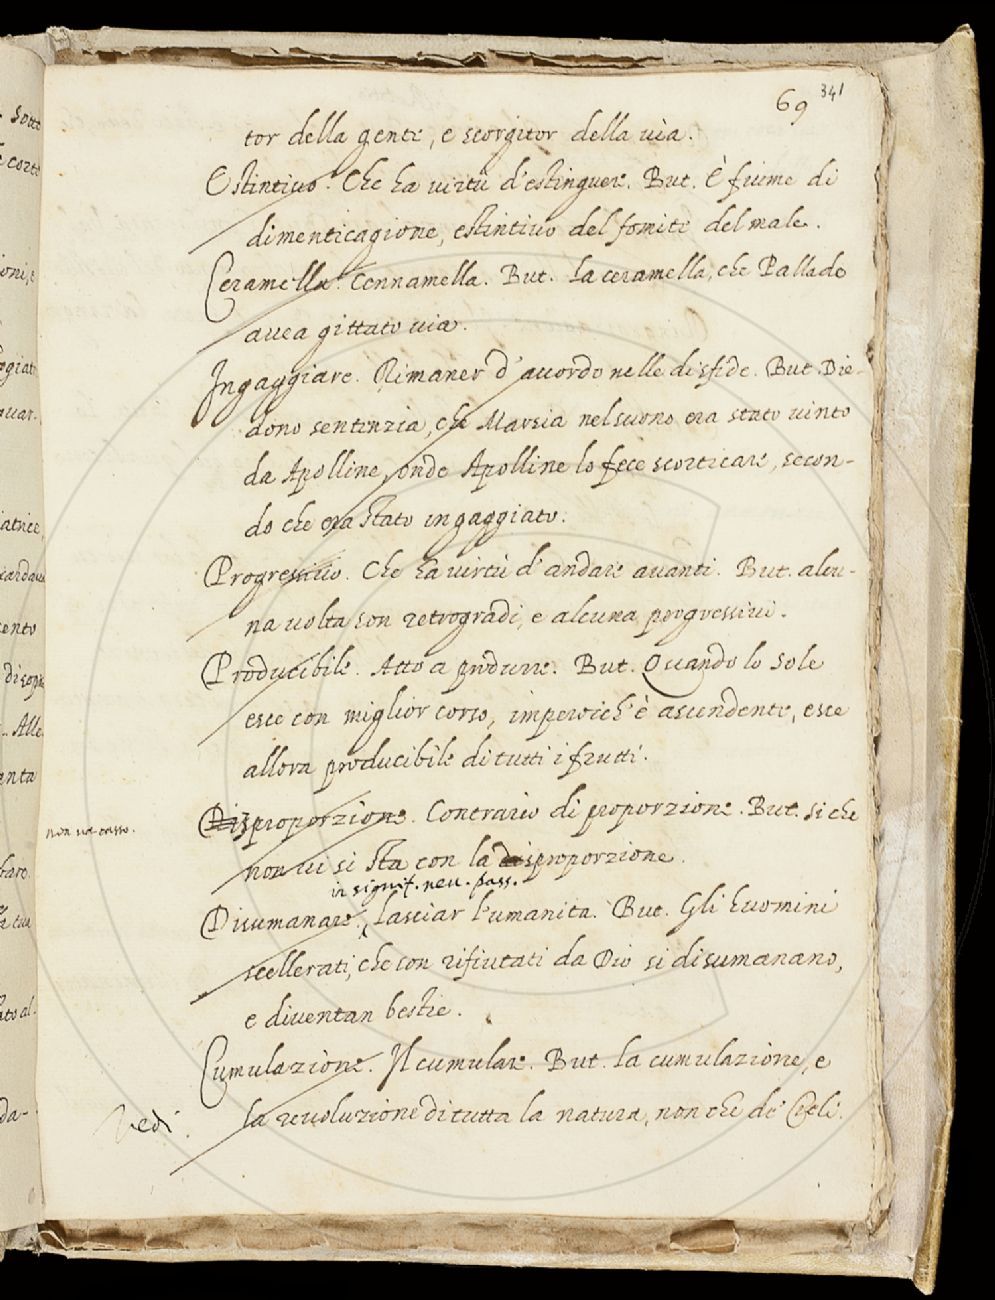 69 341
tor della gente, e scorgitor della via.
Estintivo. Che ha virtù d'estinguere. But. È fiume di
dimenticagione, estintivo del fomite del male.
Ceramella. Cennamella. But. La ceramella, che Pallade
avea gittato via.
Ingaggiare. Rimaner d'accordo nelle disfide. But. Die-
dono sentenzia, che Marsia nel suono era stato vinto
da Apolline, onde Apolline lo fece scorticare, secon-
do che era stato ingaggiato.
Progressivo. Che ha virtù d'andare avanti. But. alcu-
na volta son retrogradi, e alcuna progressivi.
Producibile. Atto a produrre. But. Quando lo Sole
esce con miglior corso, imperoich'è ascendente, esce
allora producibile di tutti i frutti.
Disproporzione. Contrario di proporzione. But. si che
non vi si sta con la disproporzione.
in signif. neu. pass.
Disumanare. lasciar l'umanita. But. Gli huomini
scellerati, che son rifiutati da Dio si disumanano,
e diventan bestie.
Cumulazione. Il cumulare. But. la cumulazione, e
la revoluzione di tutta la natura, non che de' Cieli.
Vedi.